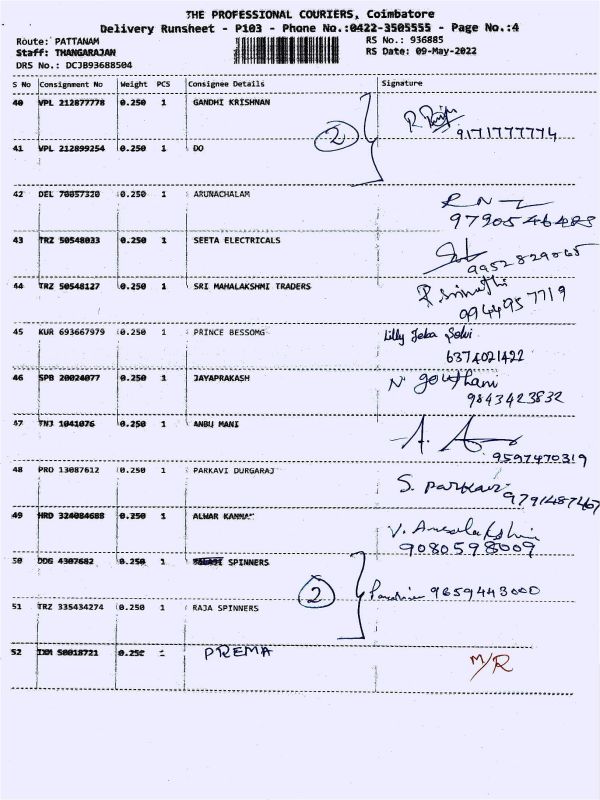 THE PROFESSIONAL COURIERS, Coimbatore
Delivery Runsheet - P103 - Phone No.:0422-3505555 - Page No.:4
Route: PATTANAM RS No.: 936885
Staff: THANGARAJAN RS Date: 09-May-2022
DRS No.: DCJB93688504
S No Consignment No Weight PCS Consignee Details Signature
40 VPL 212877778 0.250 1 GANDHI KRISHNAN
9171777774
2
41 VPL 212899254 0.250 1 DO
42 DEL 70057320 0.250 1 ARUNACHALAM
9790546483
43 TRZ 50548033 0.250 1 SEETA ELECTRICALS
9952829065
44 TRZ 50548127 0.250 1 SRI MAHALAKSHMI TRADERS P Srinathi
9944957719
45 KUR 693667979 0.250 1 PRINCE BESSOMG Lilly Jeba Selvi
6374021422
46 SPB 20024077 0.250 1 JAYAPRAKASH N gouthani
9843423832
47 TNJ 1041076 0.250 1 ANBU MANI A.
9597470319
48 PRD 13087612 0.250 1 PARKAVI DURGARAJ S. Parkavi
9791487467
49 HRD 324084688 0.250 1 ALWAR KANNA V.
9080598009
50 DDG 4307682 0.250 1 SPINNERS
2 9659443000
51 TRZ 335434274 0.250 1 RAJA SPINNERS
52 IXM 50018721 0.250 1 PREMA M/R